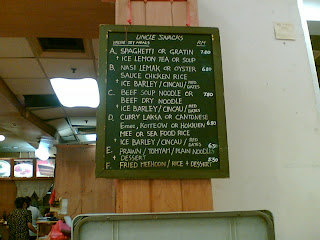 UNCLE SNACKS
SET MEALS RM
A. SPAGHETTI OR GRATIN 7.80
+ ICE LEMON TEA OR SOUP
B. NASI LEMAK OR OYSTER 6.80
SAUCE CHICKEN RICE
+ ICE BARLEY / CINCAU / RED DATES
C. BEEF SOUP NOODLE OR 7.80
BEEF DRY NOODLE
+ ICE BARLEY / CINCAU / RED DATES
D. CURRY LAKSA OR CANTONESE
KOITEOW OR HOKKIEN 6.80
MEE OR SEA FOOD RICE
+ ICE BARLEY / CINCAU / RED DATES
E. PRAWN / TOMYAM / PLAIN NOODLE
+ DESSERT
F. FRIED MEEHOON / RICE & DESSERT